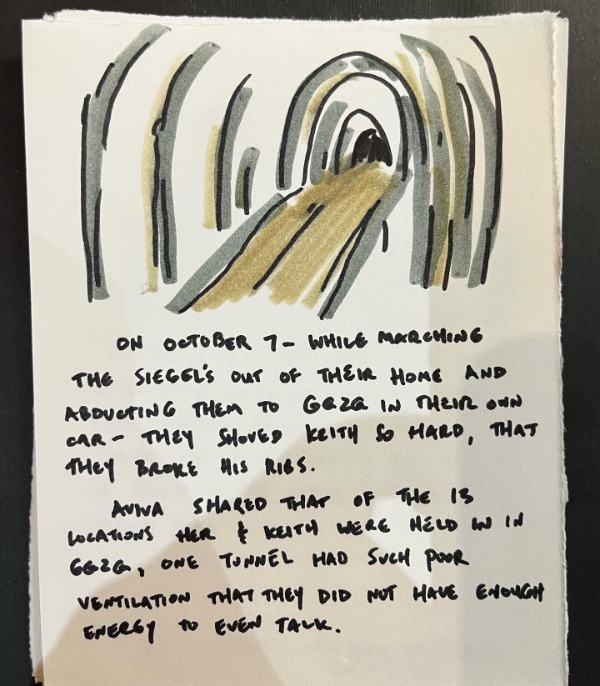 ON OCTOBER 7 - WHILE MARCHING
THE SIEGEL'S OUT OF THEIR HOME AND
ABDUCTING THEM TO GAZA IN THEIR OWN
CAR - THEY SHOVED KEITH SO HARD, THAT
THEY BROKE HIS RIBS.
AVIVA SHARED THAT OF THE 13
LOCATIONS HER & KEITH WERE HELD IN IN
GAZA, ONE TUNNEL HAD SUCH POOR
VENTILATION THAT THEY DID NOT HAVE ENOUGH
ENERGY TO EVEN TALK.